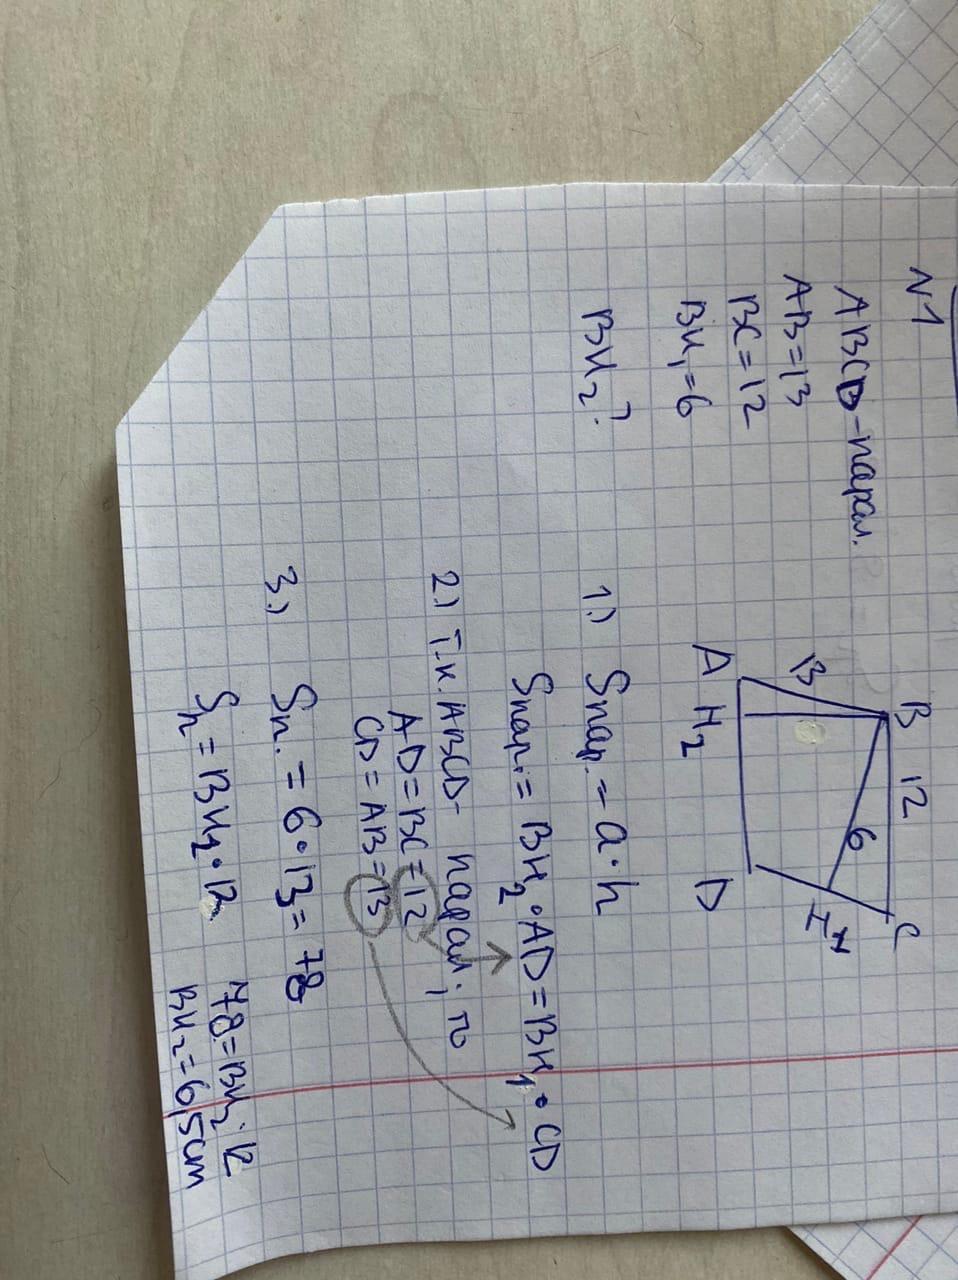 N1
ABCD-парал.
AB=13
BC=12
BH₁=6
BH₂?
B 12 C
13
6
H₁
A H₂ D
1.) Sпар.=a·h
Sпар.= BH₂·AD=BH₁·CD
2.) Т.к. ABCD- парал., то
AD=BC=12
CD=AB=13
3.) Sп.=6·13=78
Sп=BH₂·12 78=BH₂·12
BH₂=6,5cm